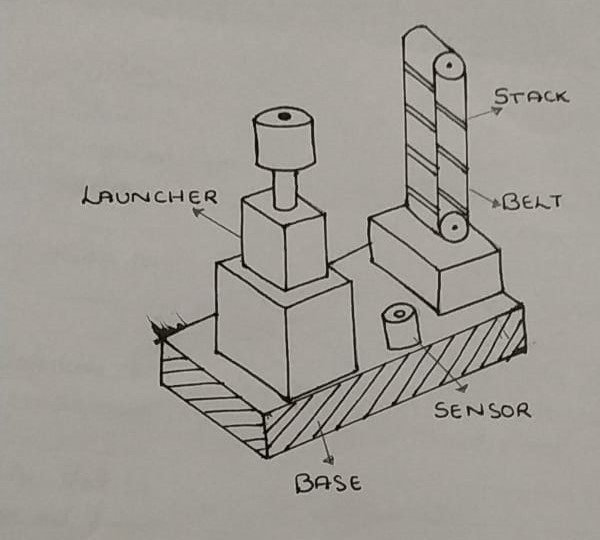 STACK
LAUNCHER
BELT
SENSOR
BASE